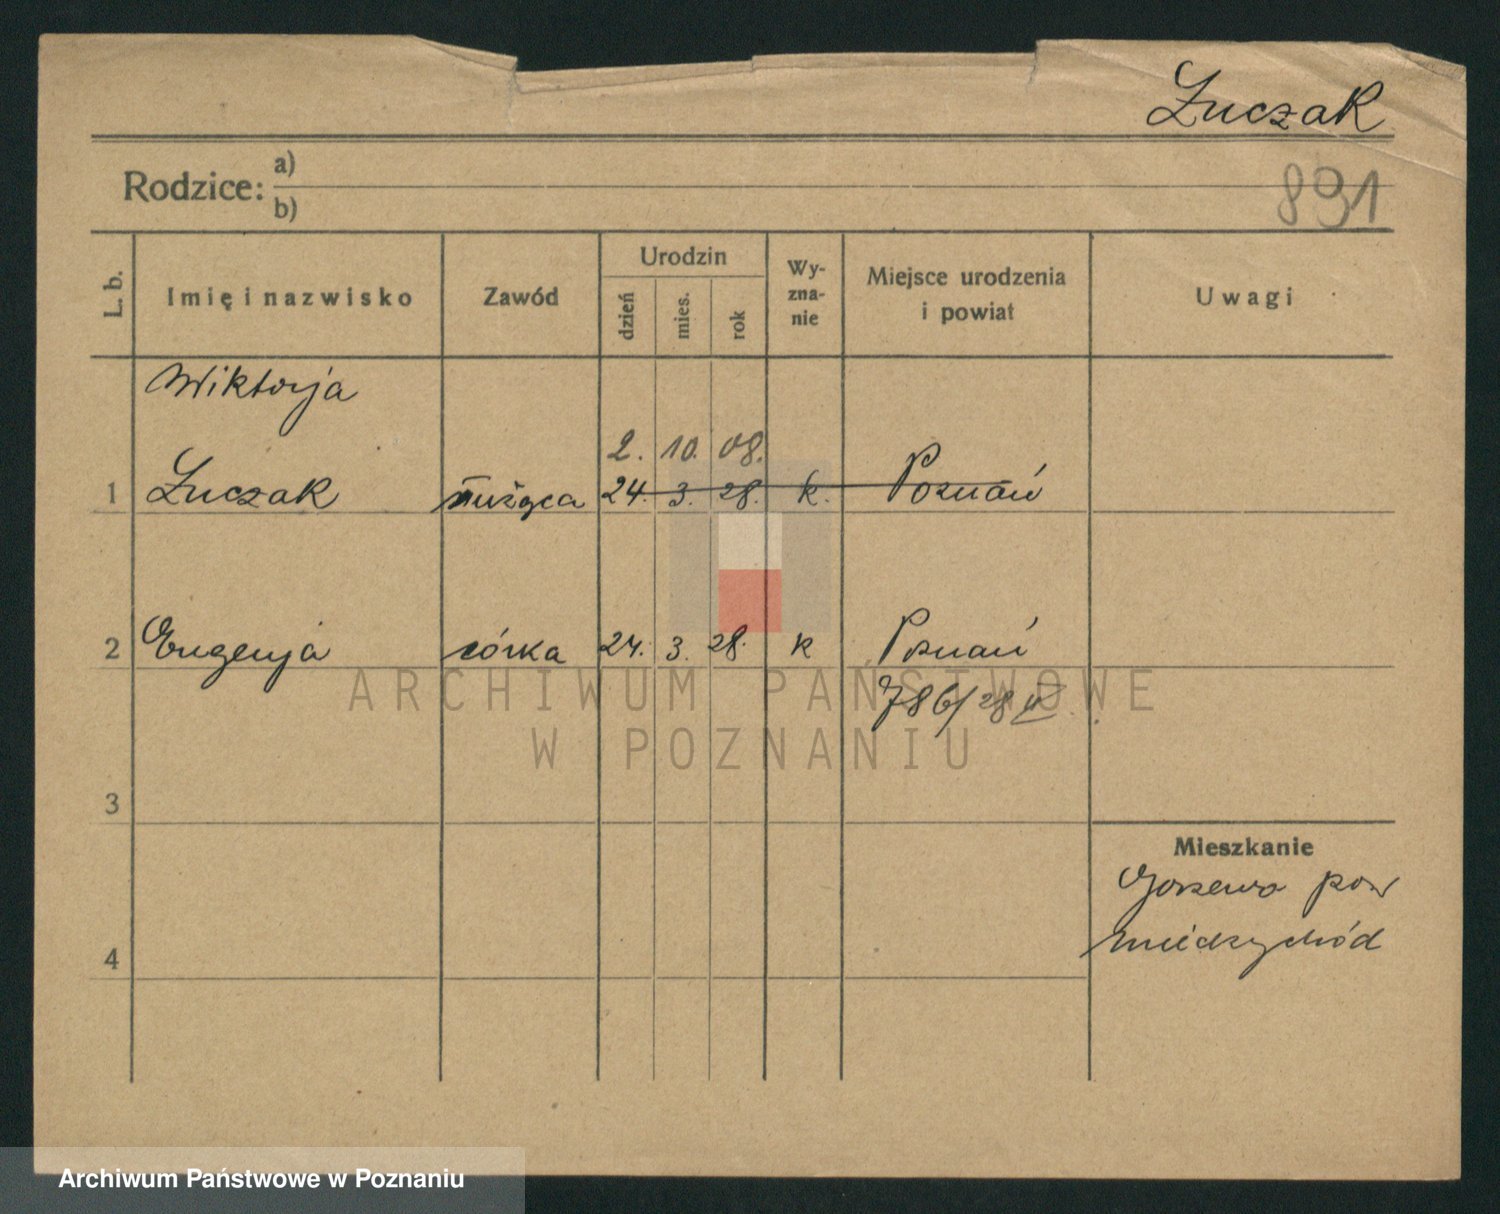 Łuczak
Rodzice: a)
b)
891
L. b. Imię i nazwisko Zawód Urodzin dzień mies. rok Wy-zna-nie Miejsce urodzenia i powiat Uwagi
Wiktorja
2. 10. 08.
1 Łuczak służąca 24. 3. 28. k. Poznań
2 Eugenja córka 24. 3. 28. k Poznań
786/28
3
Mieszkanie
Gorzewo pow
4 międzychód
ARCHIWUM PAŃSTWOWE
W POZNANIU
Archiwum Państwowe w Poznaniu